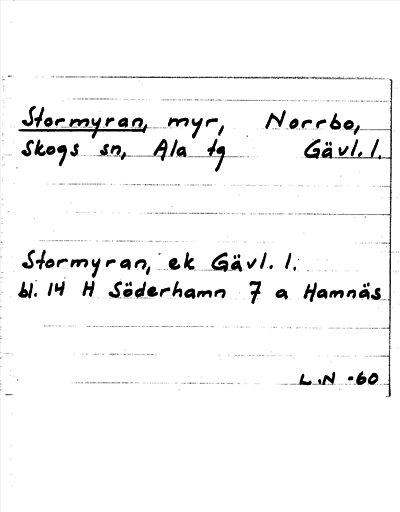 Stormyran, myr, Norrbo,
Skogs sn, Ala tg Gävl. l.
Stormyran, ek Gävl. l.
bl. 14 H Söderhamn 7 a Hamnäs
L.N -60